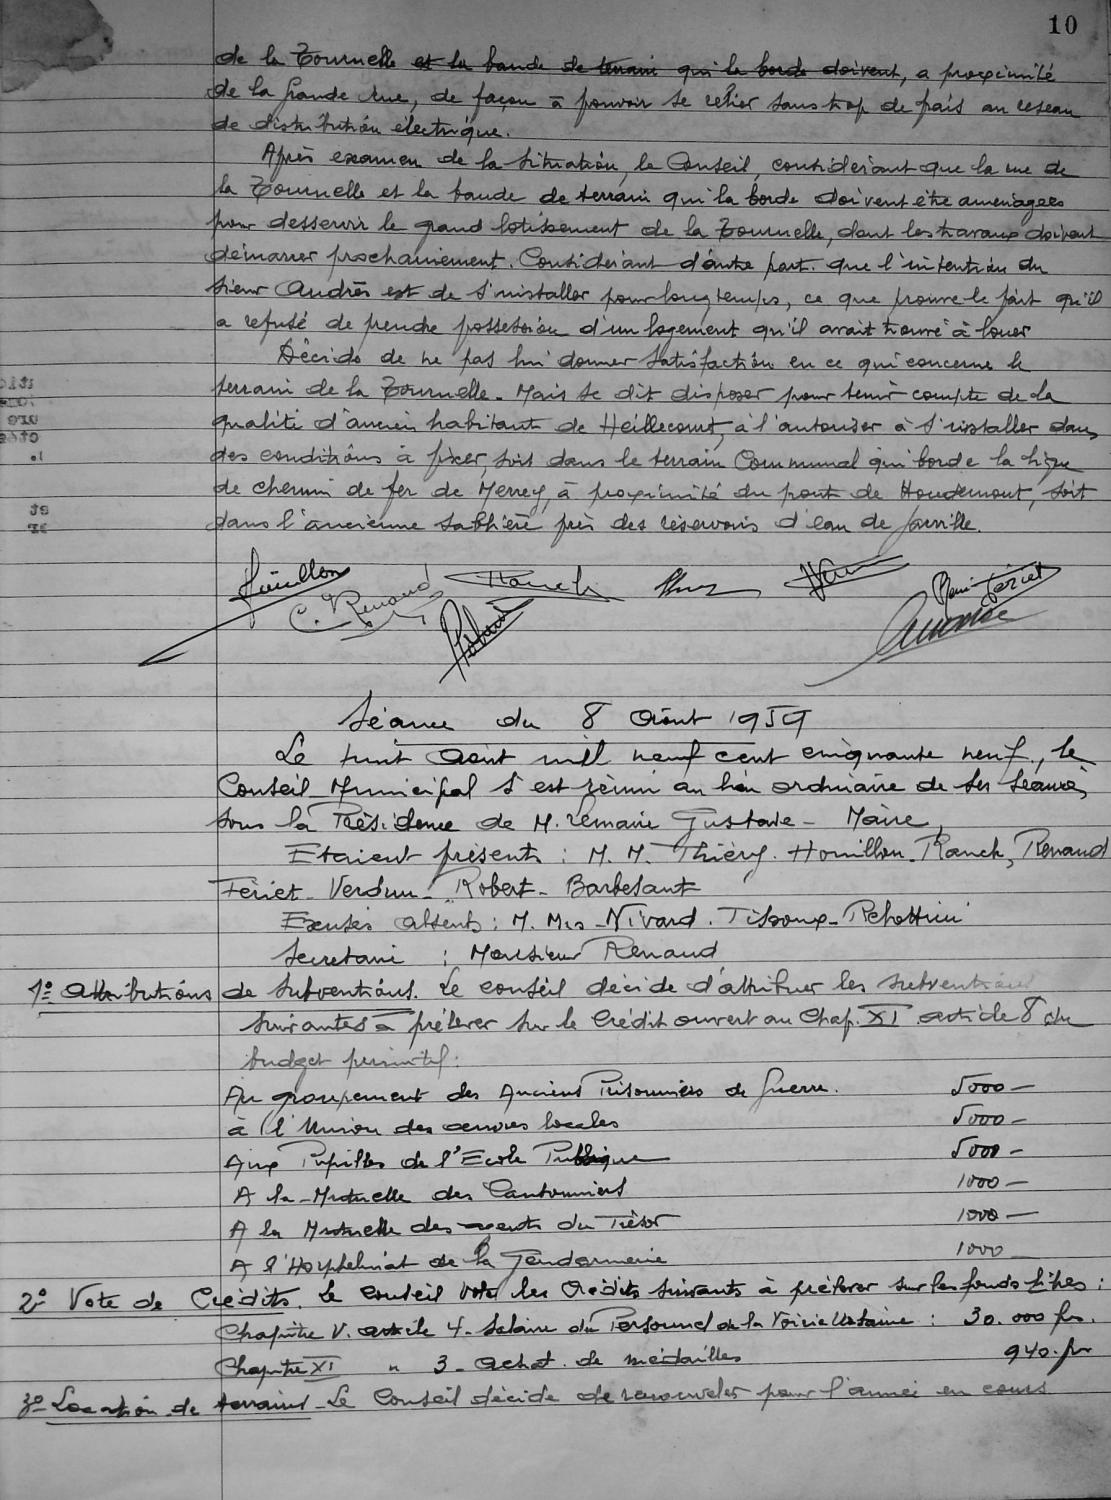 10
de la Tournelle et la bande de terrain qui la borde doivent, a proximité
de la Grande Rue, de façon à pouvoir se relier sans trop de frais au reseau
de distribution électrique.
Après examen de la situation, le Conseil, considérant que la rue de
la Tournelle et la bande de terrain qui la borde doivent être aménagées
pour desservir le grand lotissement de la Tournelle, dont les travaux doivent
démarrer prochainement. Considérant d'autre part que l'intention du
sieur Andrès est de s'installer pour longtemps, ce que prouve le fait qu'il
a refusé de prendre possession d'un logement qu'il avait trouvé à louer
Décide de ne pas lui donner satisfaction en ce qui concerne le
terrain de la Tournelle. Mais se dit disposer pour tenir compte de la
qualité d'ancien habitant de Heillecourt, à l'autoriser à s'installer dans
des conditions à fixer, soit dans le terrain Communal qui borde la ligne
de chemin de fer de Merrey, à proximité du pont de Houdemont, soit
dans l'ancienne sablière près des réservoirs d'eau de Jarville.
C. Renaud
Séance du 8 Août 1959
Le huit Août mil neuf cent cinquante neuf, le
Conseil Municipal s'est réuni au lieu ordinaire de ses séances,
sous la Présidence de M. Lemaire Gustave - Maire,
Etaient présents : M. M. Thiéry. Houillon. Ranck, Renaud
Fériet - Verdun - Robert - Barbesant
Excusés absents : M. Mrs - Nivard. Tisoux - Rehottini
Secretaire : Monsieur Renaud
1° Attributions de subventions. Le conseil décide d'attribuer les subventions
suivantes à prélever sur le Crédit ouvert au Chap. XI article 8 du
budget primitif :
Au groupement des Anciens Prisonniers de Guerre. 5000 -
à l'Union des œuvres locales 5000 -
Aux Pupilles de l'Ecole Publique 5000 -
A la Mutuelle des Cantonniers 1000 -
A la Mutuelle des agents du Trésor 1000 -
A l'Orphelinat de la Gendarmerie 1000 -
2° Vote de Crédits. Le Conseil vote les Crédits suivants à prélever sur les fonds libres :
Chapitre V. article 4. Salaire du Personnel de la Voirie Urbaine : 30.000 frs.
Chapitre XI " 3 - Achat de médailles 940. frs
3° Location de terrains - Le Conseil décide de renouveler pour l'année en cours